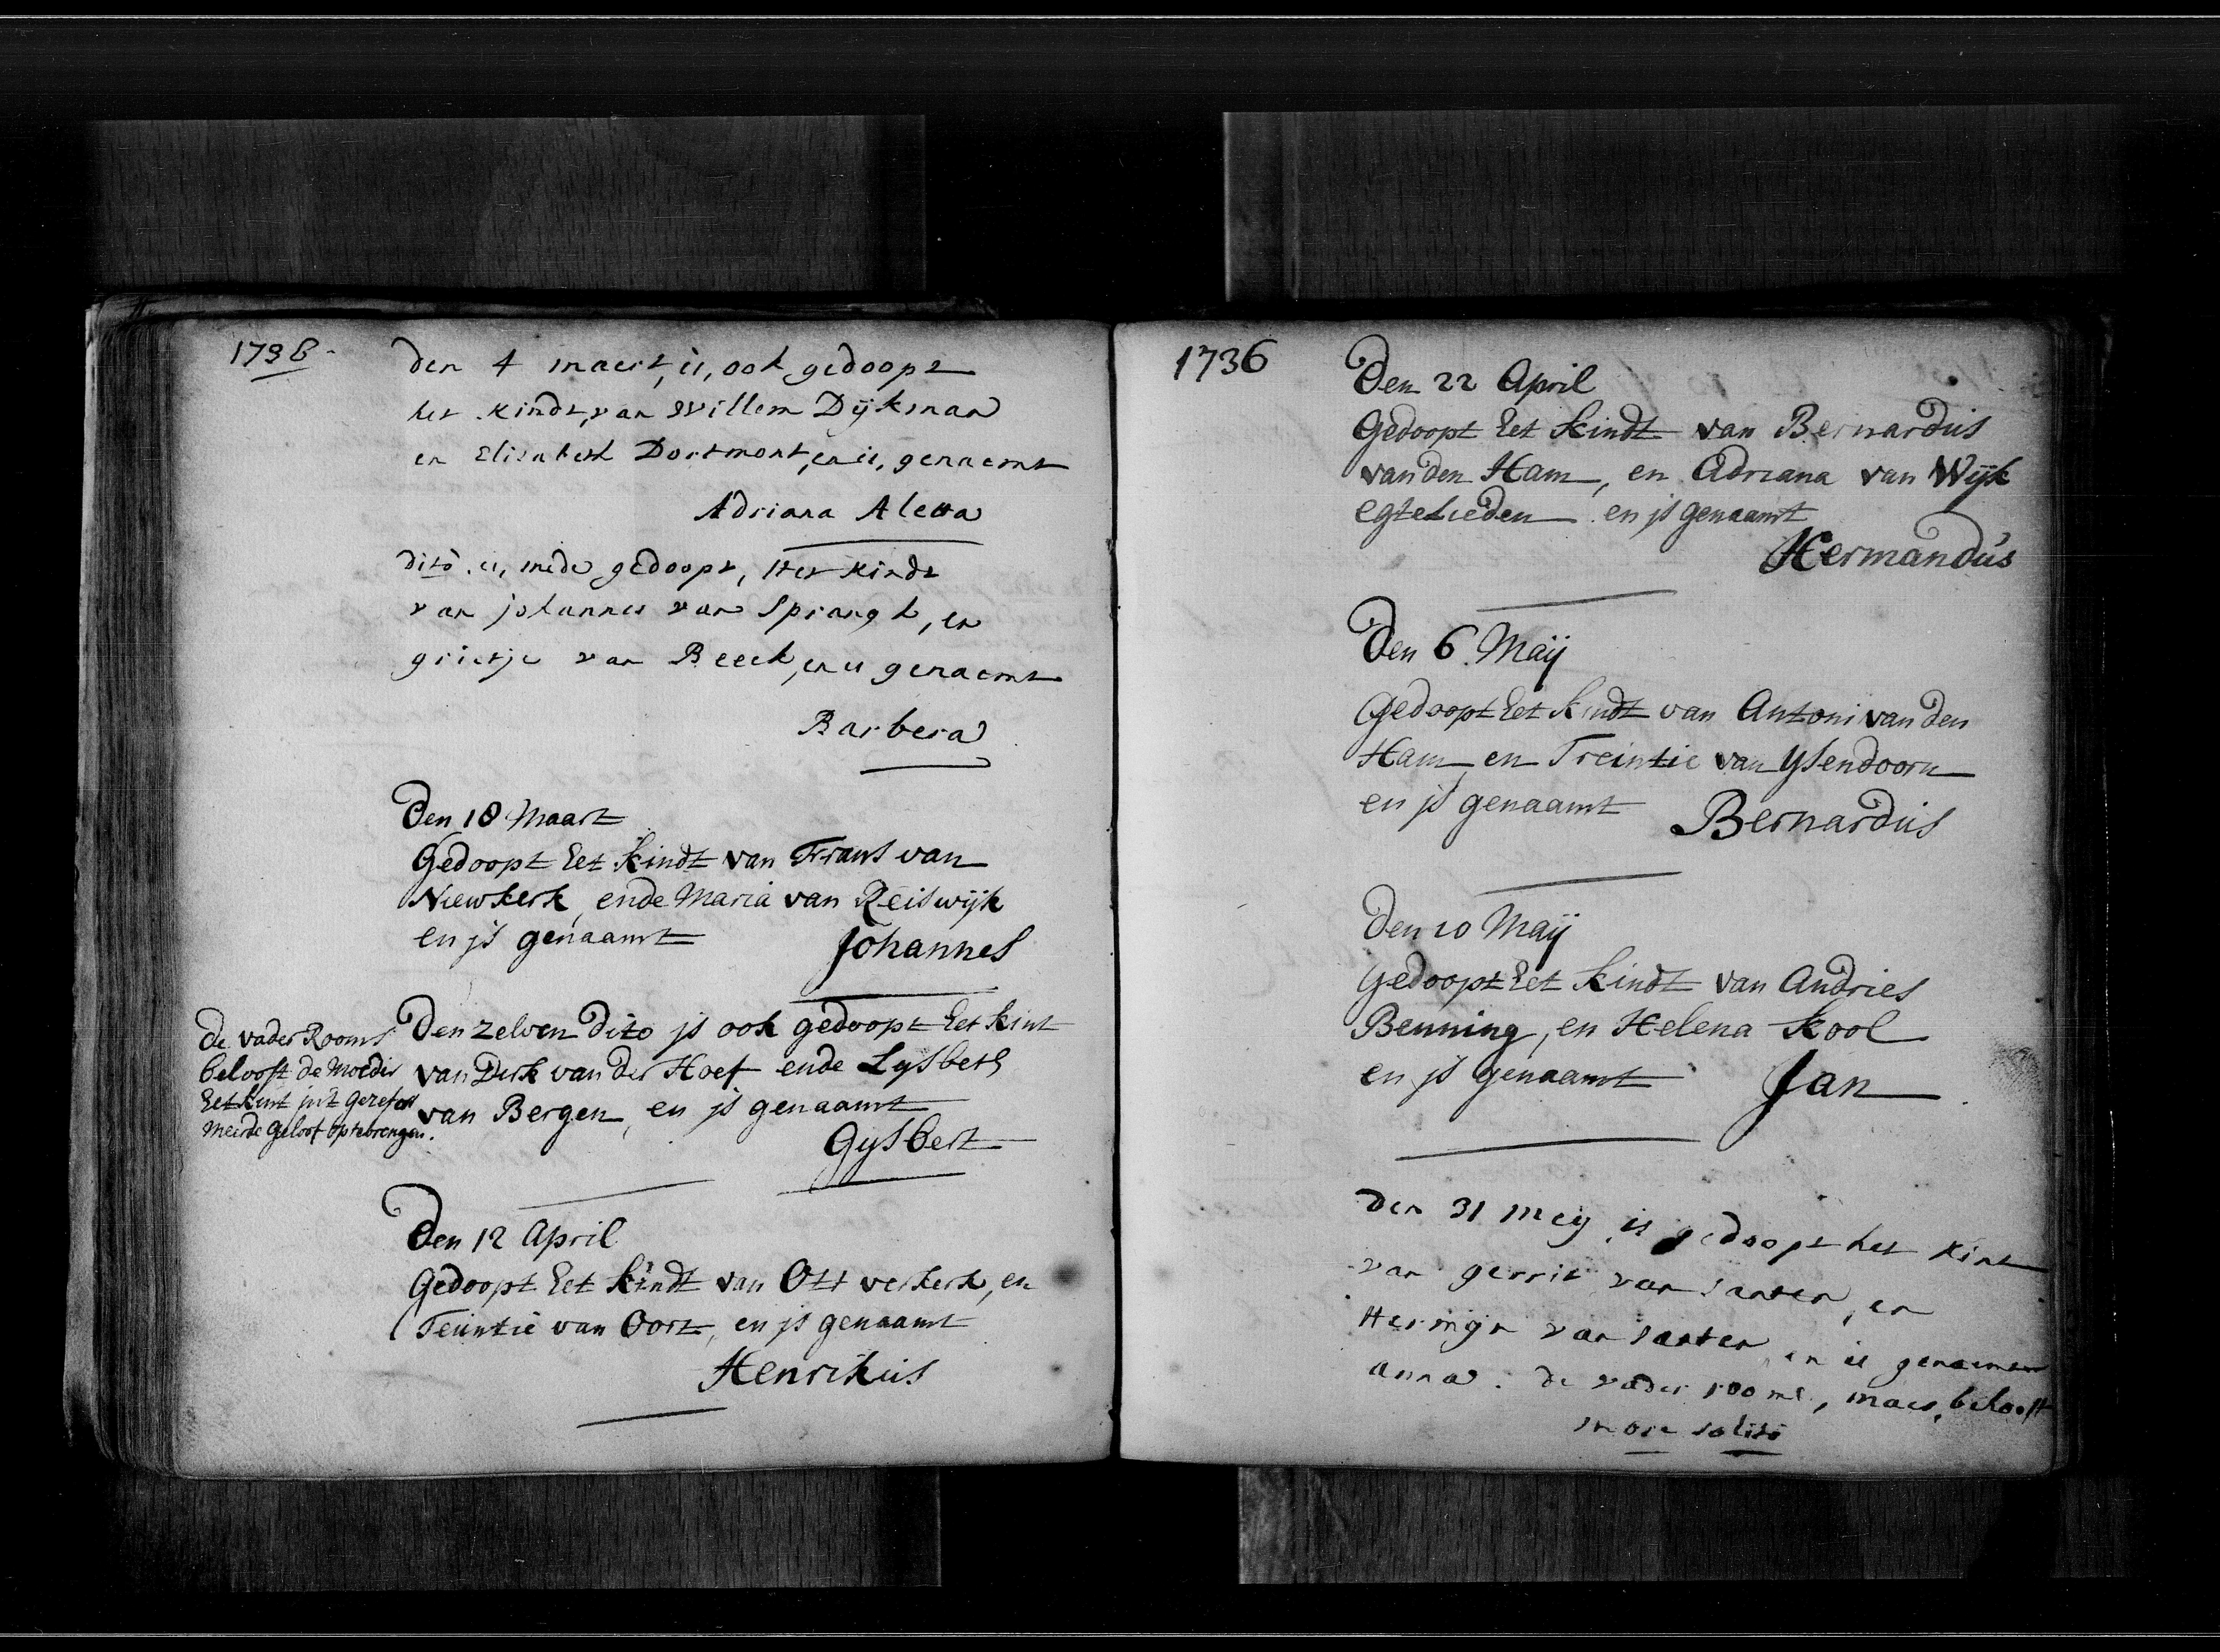 1736
den 4 maert, is, ook gedoopt
het kindt, van Willem Dijkman
en Elisabeth Dortmont, en is, genaemt
Adriana Aletta
dito is, mede gedoopt, Het kindt
van johannes van Sprangh, en
grietje van Beeck, en is genaemt
Barbera
Den 18 Maart
Gedoopt het kindt van Frans van
Niewkerk, ende Maria van Reiswijk
en js genaamt Johannes
de vader Rooms
belooft de Moeder
het kint in't gerefor
meerde geloof op te brengen.
Den zelven dito js ook gedoopt het kint
van Dirk van der Hoef ende Lysbeth
van Bergen, en js genaamt
Gysbert
Den 12 April
Gedoopt het kindt van Ott verkerk, en
Teuntie van Oort, en js genaamt
Henrikus
1736
Den 22 April
Gedoopt het kindt van Bernardus
van den Ham, en Adriana van Wijk
egtelieden en js genaamt
Hermandus
Den 6 Maij
Gedoopt het kindt van Antoni van den
Ham en Treintie van Ysendoorn
en js genaamt Bernardus
Den 10 Maij
Gedoopt het kindt van Andries
Benning, en Helena Kool
en js genaamt Jan
den 31 mey is gedoopt het kint
van gerrit van santen, en
Hermyn van santen, en is genaemt
anna. de vader rooms, maer, belooft
more solito